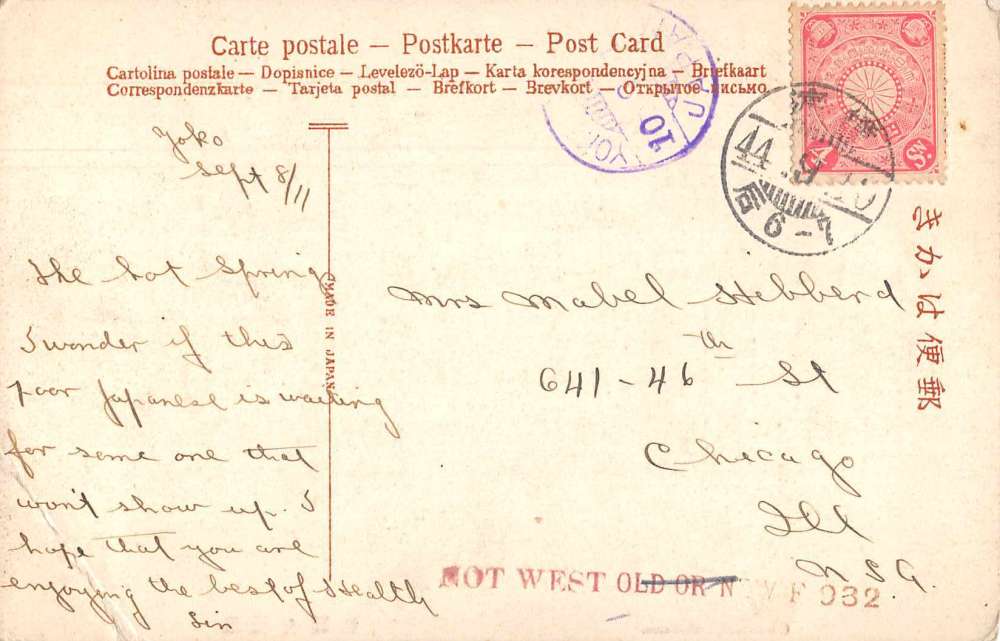 Carte postale — Postkarte — Post Card
Cartolina postale — Dopisnice — Levelezö-Lap — Karta korespondencyjna — Briefkaart
Correspondenzkarte — Tarjeta postal — Brefkort — Brevkort — Открытое письмо
きかは便郵
4 Sn.
44. 9.
后 6-7
YOKOHAMA
10
JAPAN
Yoko
Sept 8/11
The hot springs
I wonder if this
poor Japanese is waiting
for some one that
won't show up. I
hope that you are
enjoying the best of Health
Sin
MADE IN JAPAN
Mrs Mabel Hebberd
641-46 th St
Chicago
Ill
U.S.A.
NOT WEST OLD OR N W F 932